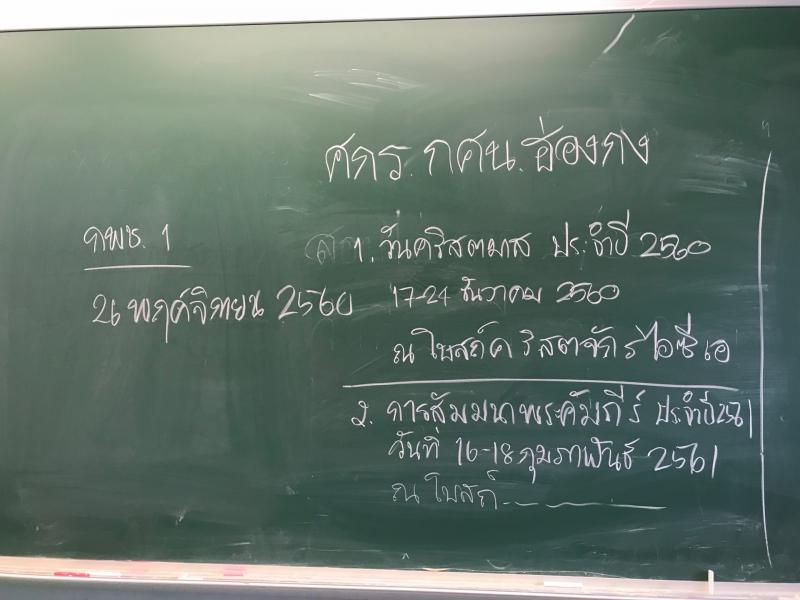 ศกร. กศน. ฮ่องกง
กพช. 1
26 พฤศจิกายน 2560
1. วันคริสตมาส ประจำปี 2560
17-24 ธันวาคม 2560
ณ โบสถ์คริสตจักรไอซีเอ
2. การสัมมนาพระคัมภีร์ ประจำปี 2561
วันที่ 16-18 กุมภาพันธ์ 2561
ณ โบสถ์